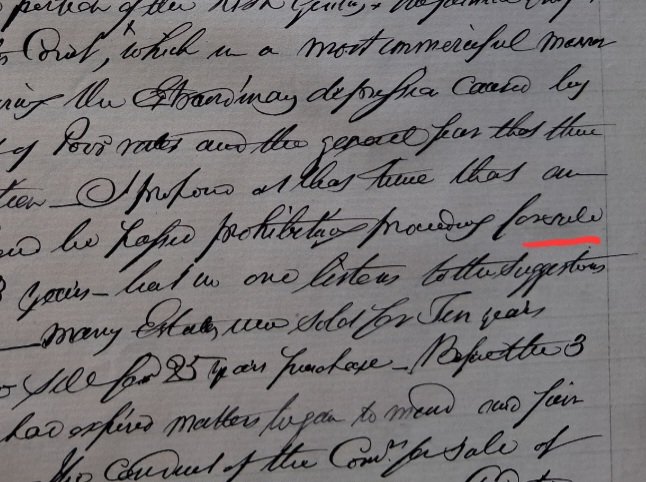 of the Irish
Court, which in a most unmerciful manner
the Extraordinary depression caused by
of Poor rates and the general fear that
I proposed at that time that an
be passed prohibiting proceedings for sale
3 years – but no one listens to the suggestions
– many Estates were sold for Ten years
sell for 25 years purchase – Before the 3
had expired matters began to mend and
The conduct of the Com.rs for sale of